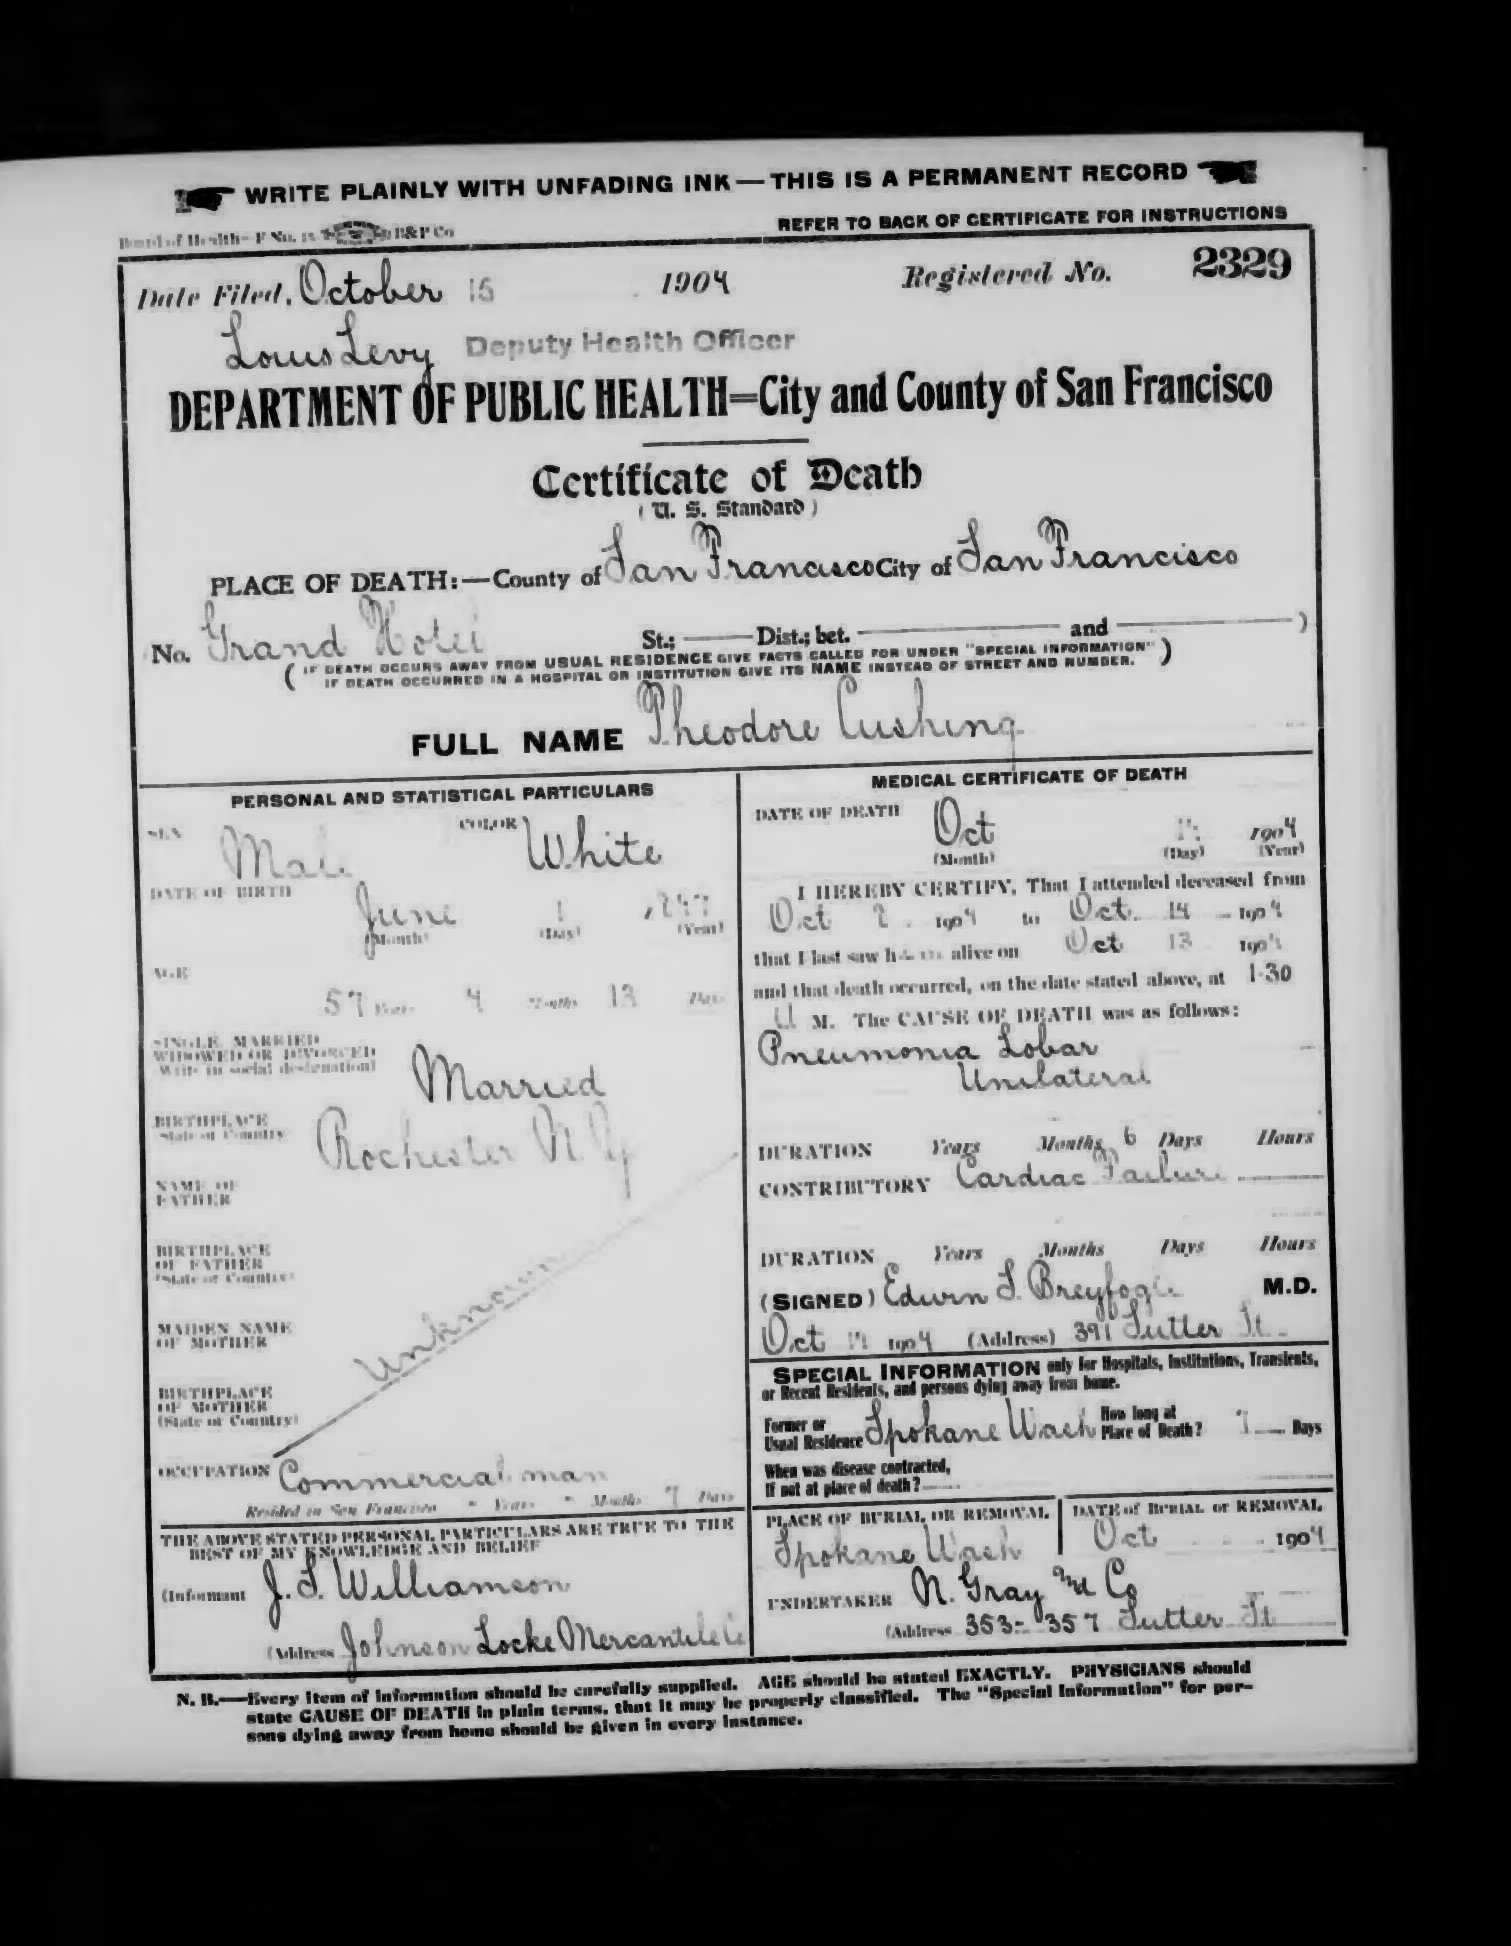 WRITE PLAINLY WITH UNFADING INK — THIS IS A PERMANENT RECORD
Board of Health—F No. B&P Co
REFER TO BACK OF CERTIFICATE FOR INSTRUCTIONS
Date Filed, October 15 1904 Registered No. 2329
Louis Levy Deputy Health Officer
DEPARTMENT OF PUBLIC HEALTH=City and County of San Francisco
Certificate of Death
(U. S. Standard)
PLACE OF DEATH:—County of San Francisco City of San Francisco
No. Grand Hotel St.; Dist.; bet. and )
( IF DEATH OCCURS AWAY FROM USUAL RESIDENCE GIVE FACTS CALLED FOR UNDER "SPECIAL INFORMATION" )
IF DEATH OCCURRED IN A HOSPITAL OR INSTITUTION GIVE ITS NAME INSTEAD OF STREET AND NUMBER.
FULL NAME Theodore Cushing
PERSONAL AND STATISTICAL PARTICULARS
SEX Male COLOR White
DATE OF BIRTH
June 1 1847
(Month) (Day) (Year)
AGE
57 Years 4 Months 13 Days
SINGLE, MARRIED
WIDOWED OR DIVORCED
(Write in social designation)
Married
BIRTHPLACE
(State or Country)
Rochester N Y
NAME OF
FATHER
BIRTHPLACE
OF FATHER
(State or Country)
MAIDEN NAME
OF MOTHER
Unknown
BIRTHPLACE
OF MOTHER
(State or Country)
OCCUPATION Commercial man
Resided in San Francisco - Years - Months 7 Days
THE ABOVE STATED PERSONAL PARTICULARS ARE TRUE TO THE
BEST OF MY KNOWLEDGE AND BELIEF
(Informant J. S. Williamson
(Address Johnson Locke Mercantile Co
MEDICAL CERTIFICATE OF DEATH
DATE OF DEATH
Oct 14 1904
(Month) (Day) (Year)
I HEREBY CERTIFY, That I attended deceased from
Oct 1904 to Oct. 14 1904
that I last saw him alive on Oct 13 1904
and that death occurred, on the date stated above, at 1-30
M. The CAUSE OF DEATH was as follows:
Pneumonia Lobar
Unilateral
DURATION Years Months 6 Days Hours
CONTRIBUTORY Cardiac Failure
DURATION Years Months Days Hours
(SIGNED) Edwin S. Breyfogle M.D.
Oct 14 1904 (Address) 391 Sutter St.
SPECIAL INFORMATION only for Hospitals, Institutions, Transients,
or Recent Residents, and persons dying away from home.
Former or
Usual Residence Spokane Wash How long at
Place of Death? 7 Days
When was disease contracted,
If not at place of death?
PLACE OF BURIAL OR REMOVAL DATE of BURIAL or REMOVAL
Spokane Wash Oct 1904
UNDERTAKER N. Gray and Co
(Address 353-357 Sutter St
N. B.—Every item of information should be carefully supplied. AGE should be stated EXACTLY. PHYSICIANS should
state CAUSE OF DEATH in plain terms, that it may be properly classified. The "Special Information" for per-
sons dying away from home should be given in every instance.